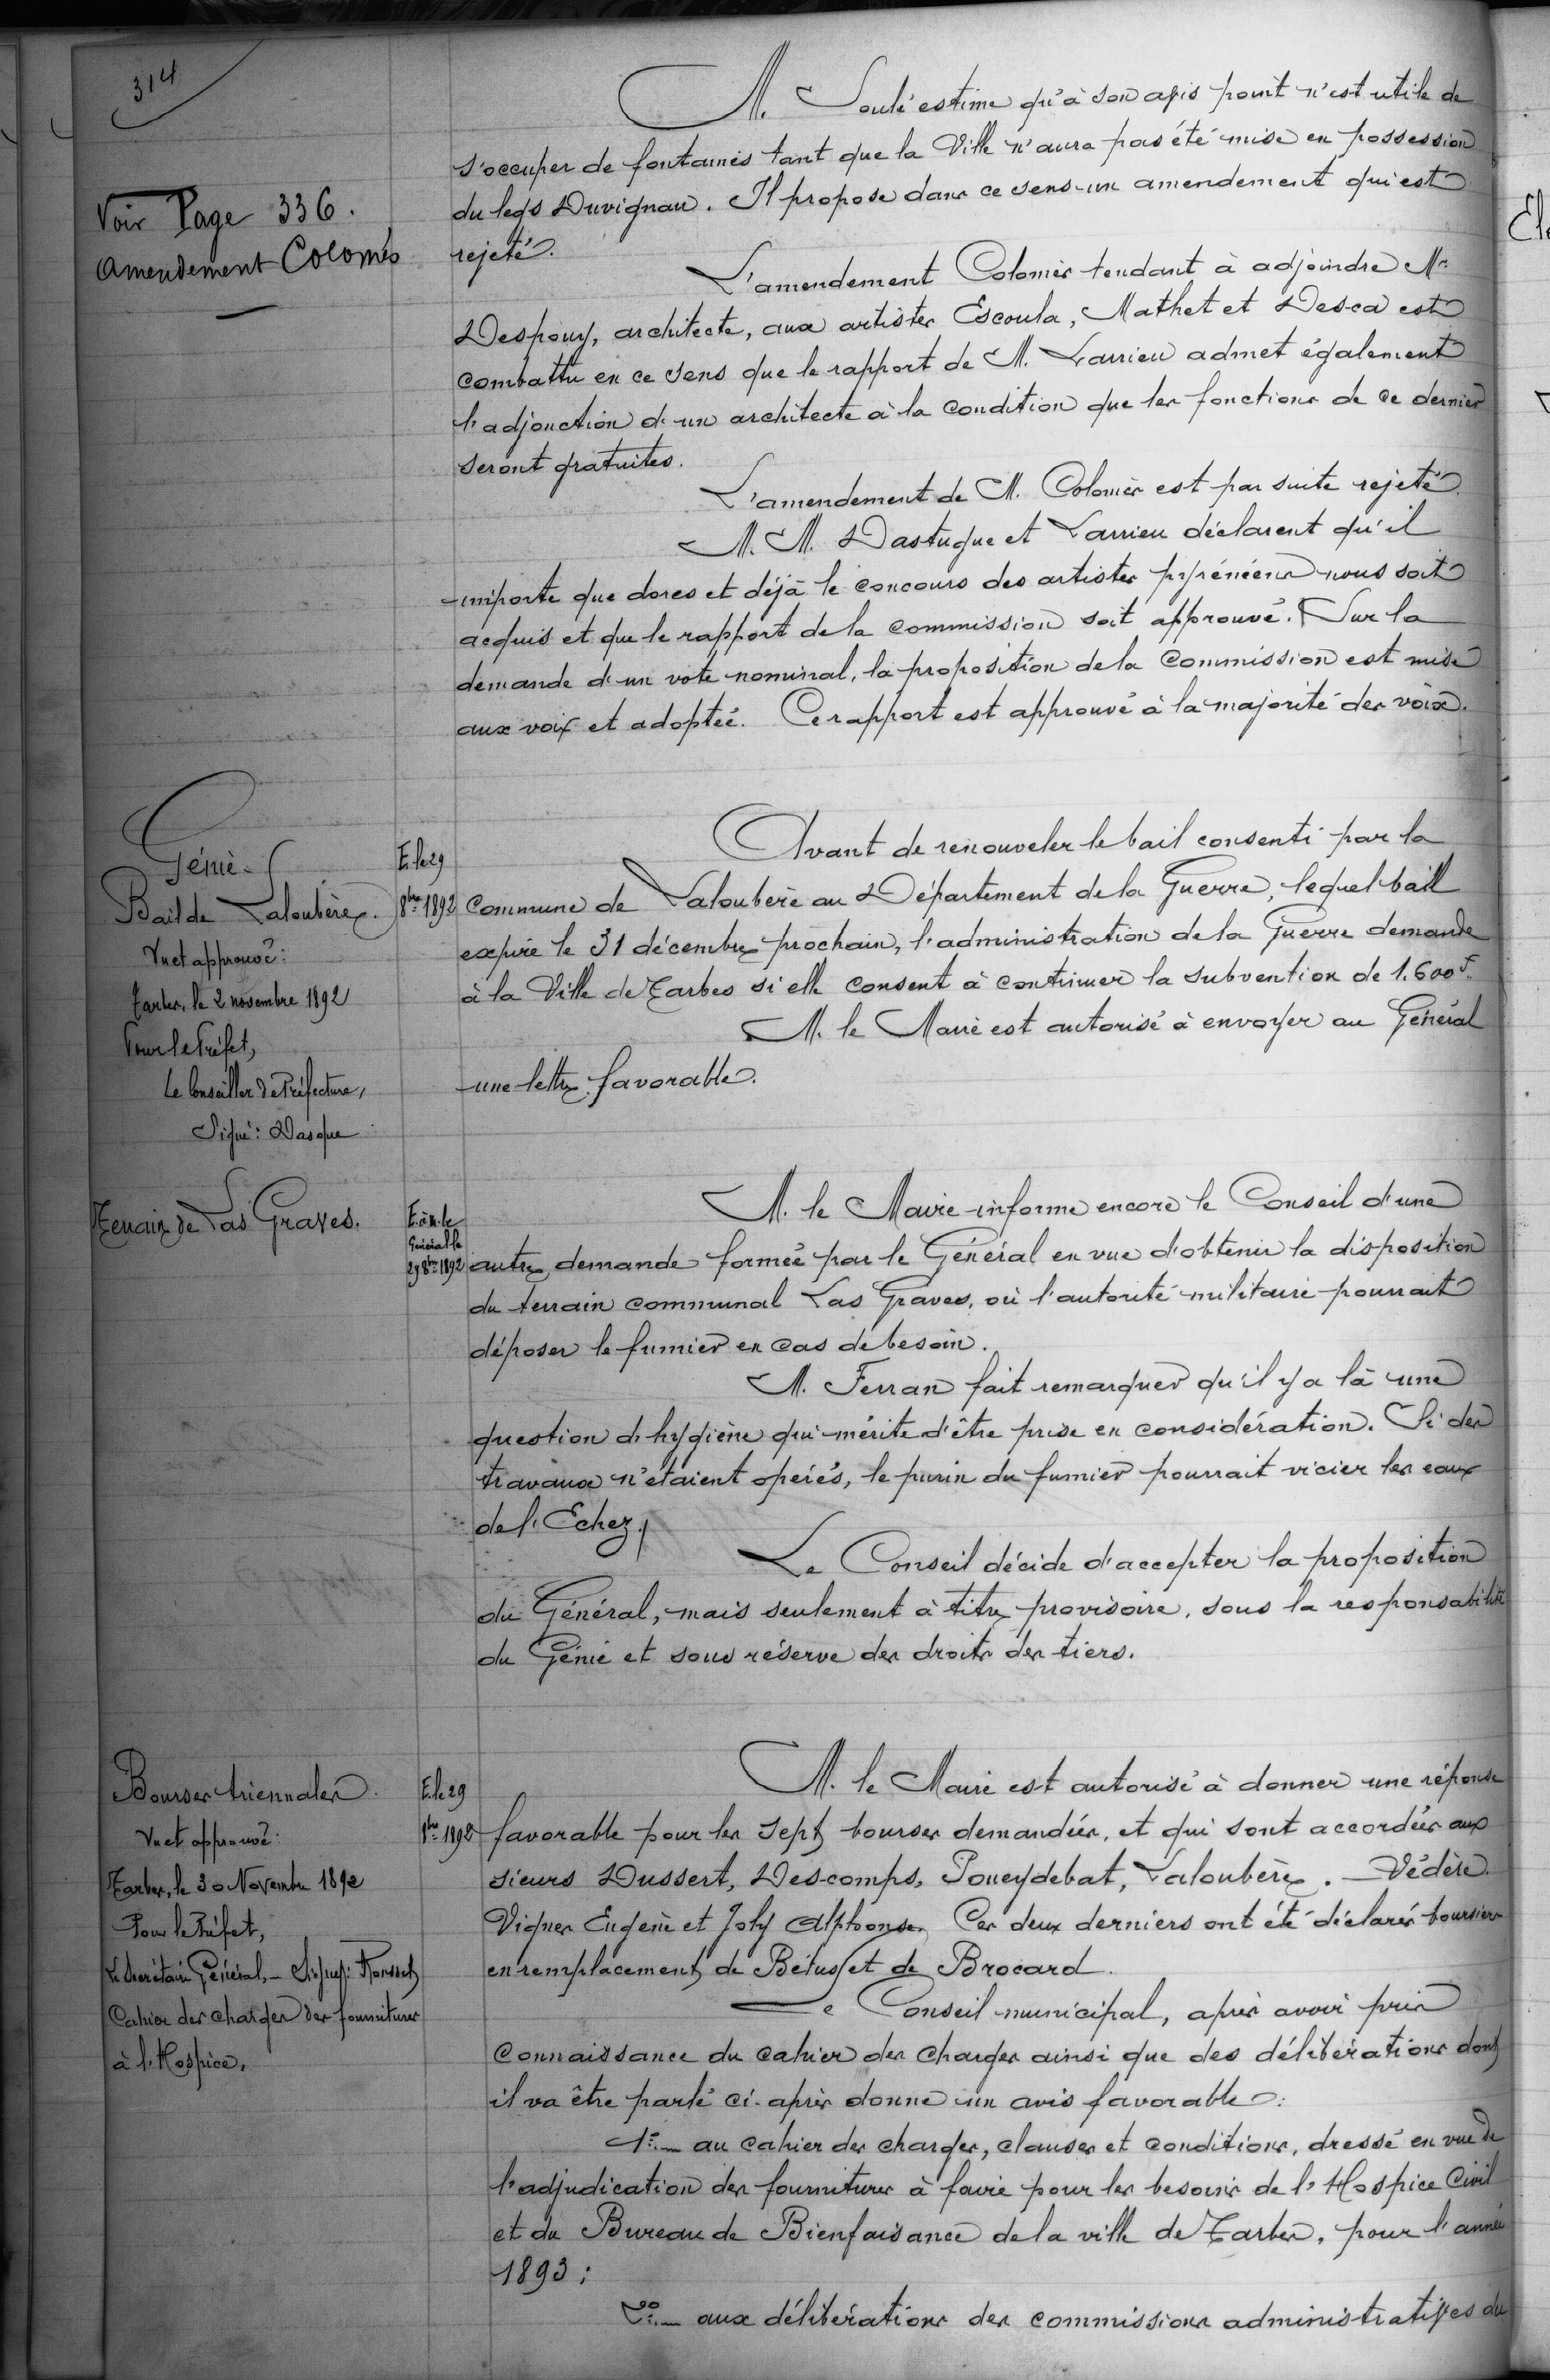 314
M. Soulé estime qu'à son avis point n'est utile de
s'occuper de fontaines tant que la Ville n'aura pas été mise en possession
du legs Duvignau. Il propose dans ce sens un amendement qui est
rejeté.
Voir Page 336.
Amendement Colomès
L'amendement Colomès tendant à adjoindre Mr
Despouy, architecte, aux artistes Escoula, Mathet et Desca est
combattu en ce sens que le rapport de M. Larrieu admet également
l'adjonction d'un architecte à la condition que les fonctions de ce dernier
seront gratuites.
L'amendement de M. Colomès est par suite rejeté.
M. M. Dastugue et Larrieu déclarent qu'il
importe que dores et déjà le concours des artistes pyrénéens nous soit
acquis et que le rapport de la commission soit approuvé. Sur la
demande d'un vote nominal, la proposition de la Commission est mise
aux voix et adoptée. Ce rapport est approuvé à la majorité des voix.
Génie.
Bail de Laloubère.
Vu et approuvé:
Tarbes, le 2 novembre 1892
Pour le Préfet,
Le Conseiller de Préfecture,
Signé: Dasque
E. le 29
8bre 1892
Avant de renouveler le bail consenti par la
commune de Laloubère au Département de la Guerre, lequel bail
expire le 31 décembre prochain, l'administration de la Guerre demande
à la Ville de Tarbes si elle consent à continuer la subvention de 1.600f.
M. le Maire est autorisé à envoyer au Général
une lettre favorable.
Terrain de Las Graves.
E. à M. le
Général le
29 8bre 1892
M. le Maire informe encore le Conseil d'une
autre demande formée par le Général en vue d'obtenir la disposition
du terrain communal Las Graves, où l'autorité militaire pourrait
déposer le fumier en cas de besoin.
M. Ferran fait remarquer qu'il y a là une
question d'hygiène qui mérite d'être prise en considération. Si des
travaux n'étaient opérés, le purin du fumier pourrait vicier les eaux
de l'Echez.
Le Conseil décide d'accepter la proposition
du Général, mais seulement à titre provisoire, sous la responsabilité
du Génie et sous réserve des droits des tiers.
Bourses triennales.
Vu et approuvé:
Tarbes, le 30 Novembre 1892
Pour le Préfet,
Le Secrétaire Général, - Signé:
Cahier des charges des fournitures
à l'Hospice.
E. le 29
8bre 1892
M. le Maire est autorisé à donner une réponse
favorable pour les sept bourses demandées, et qui sont accordées aux
sieurs Dussert, Descomps, Poueydebat, Laloubère. Védère.
Vignes Eugène et Joly Alphonse. Ces deux derniers ont été déclarés boursiers
en remplacement de Bétus et de Brocard.
Le Conseil municipal, après avoir pris
connaissance du cahier des charges ainsi que des délibérations dont
il va être parlé ci-après donne un avis favorable:
1° au cahier des charges, clauses et conditions, dressé en vue de
l'adjudication des fournitures à faire pour les besoins de l'Hospice Civil
et du Bureau de Bienfaisance de la ville de Tarbes, pour l'année
1893;
2° aux délibérations des commissions administratives du